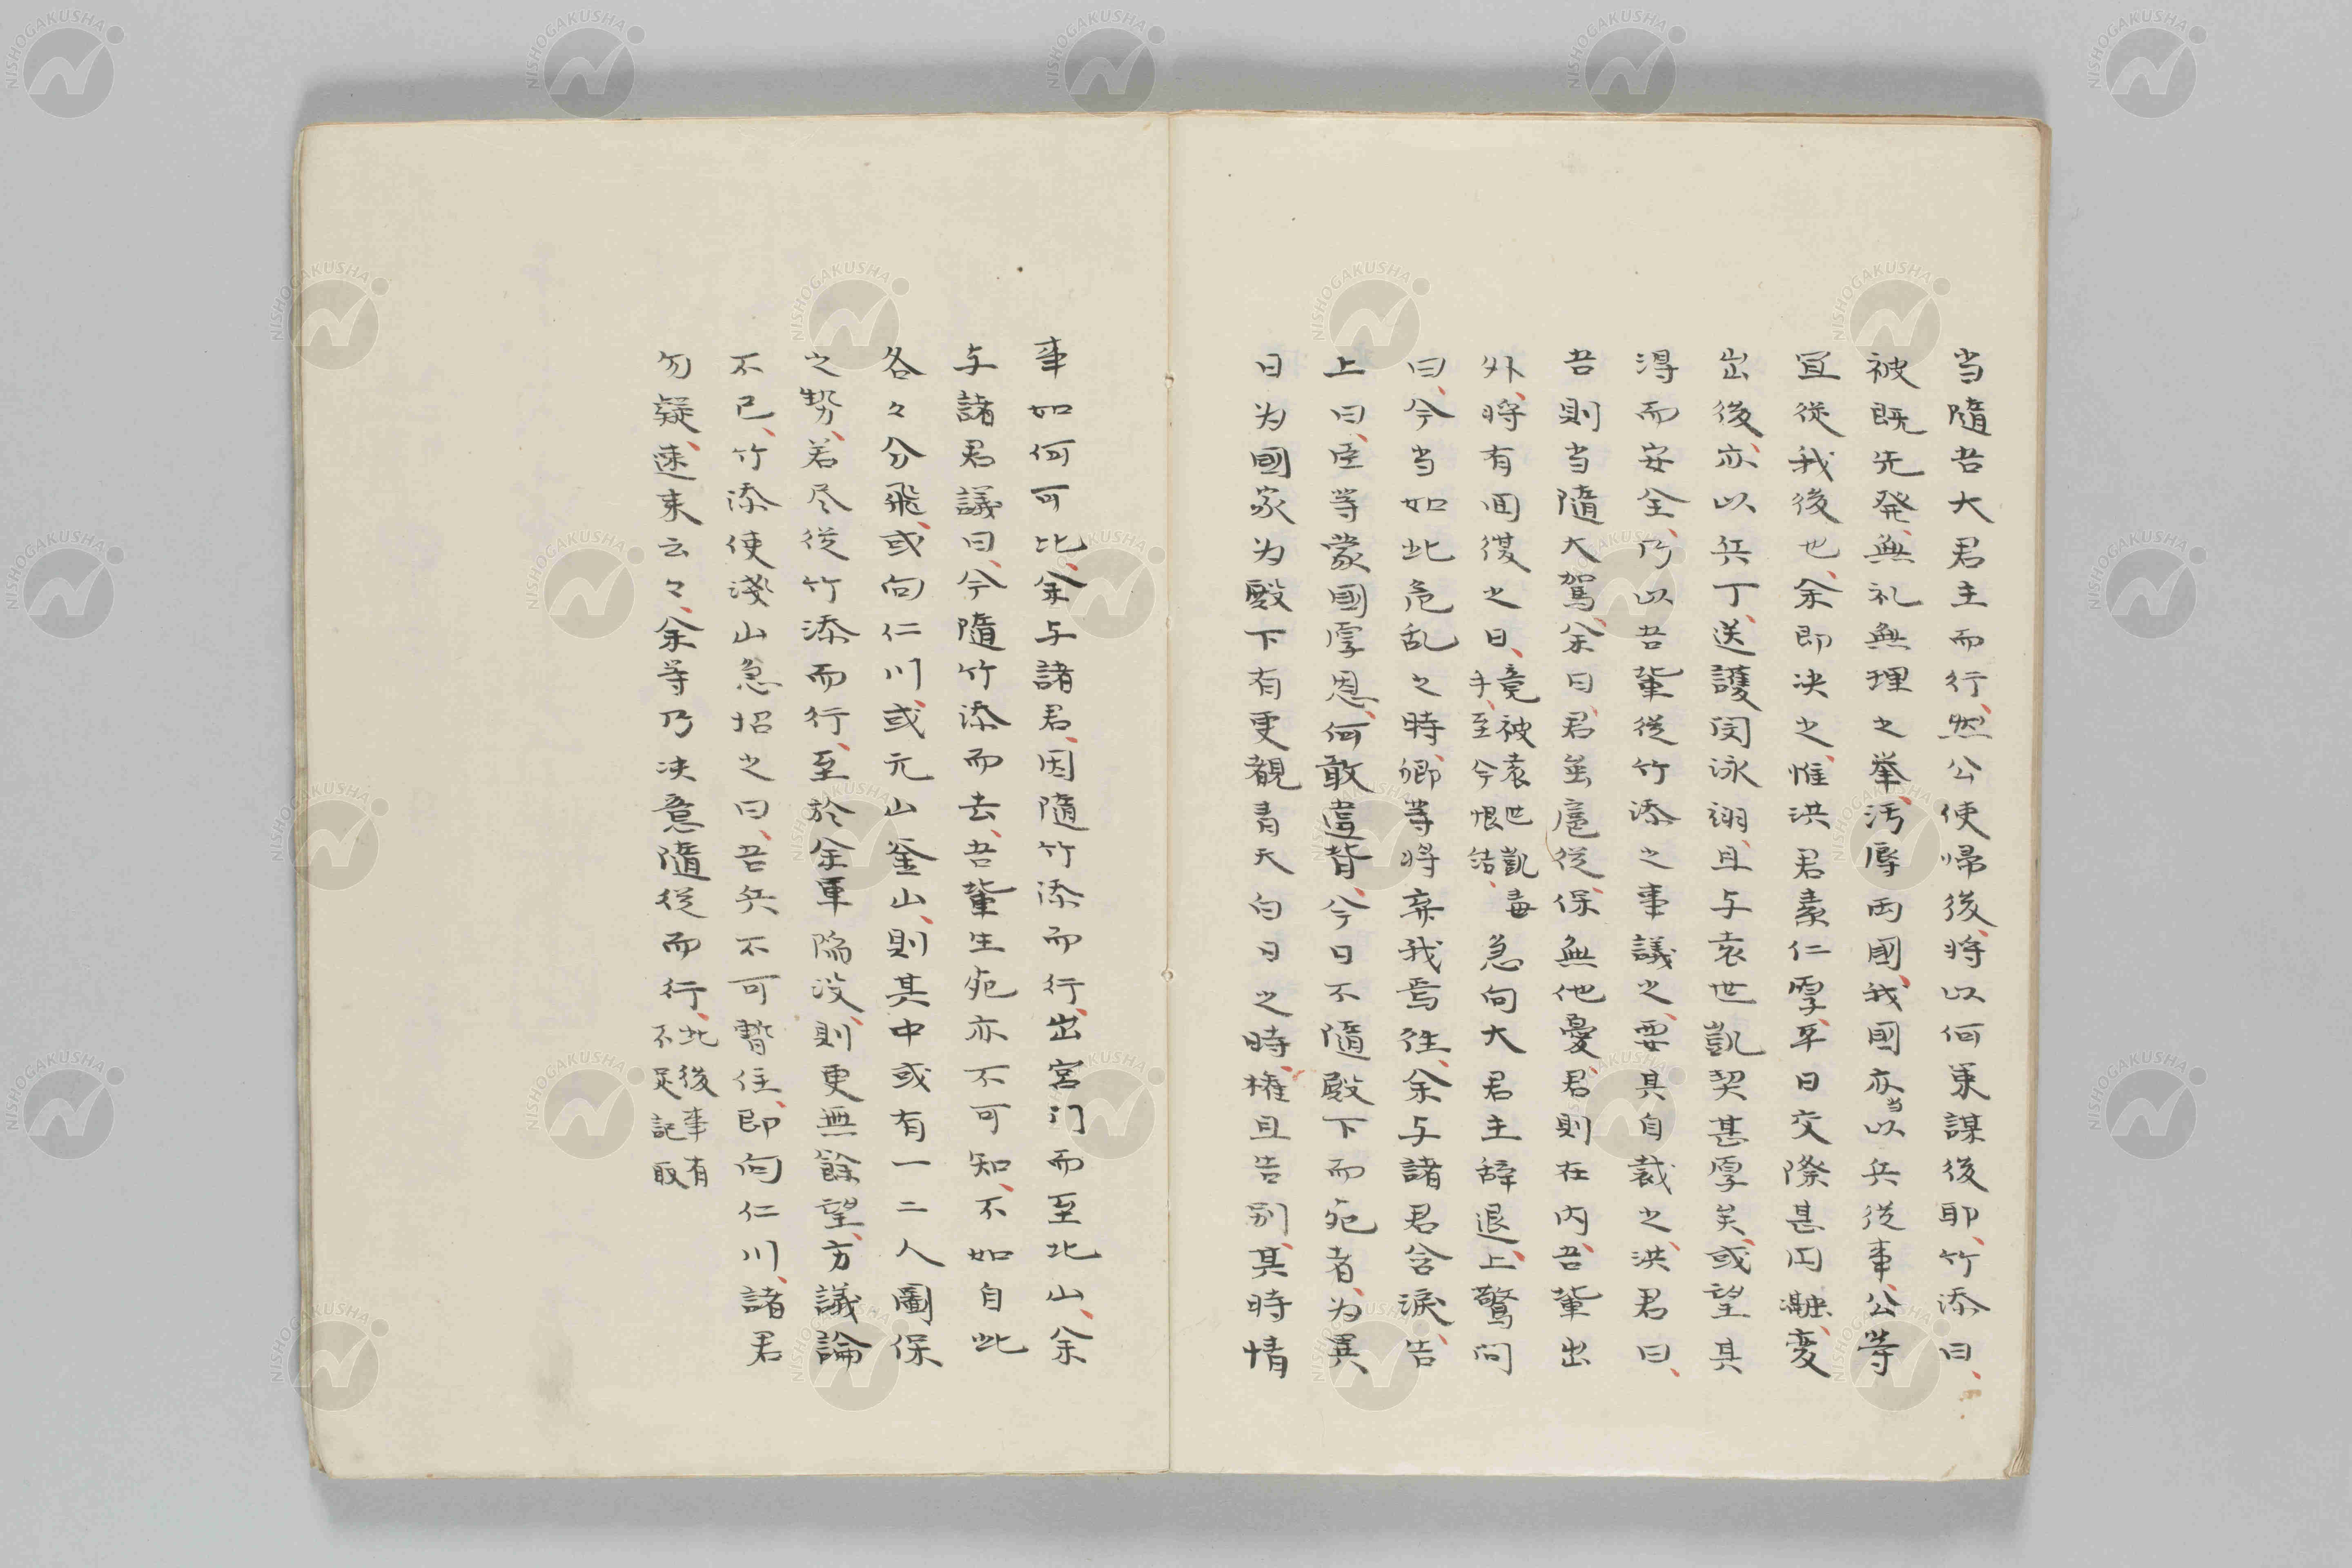 当隨吾大君主而行、然公使帰後、将以何策謀後耶、竹添曰、
被既先発、無礼無理之挙、汚辱両國、我國亦当以兵従事、公等
宜從我後也、余即决之、惟洪君素仁厚、平日交際甚円瀜、変
出後、亦以兵丁、送護閔泳翊、且与袁世凱契甚厚矣、或望其
得而安全、乃以吾輩從竹添之事議之、要其自裁之、洪君曰、
吾則当隨大駕、余曰、君虽扈從、保無他憂、君則在内、吾輩出
外、将有回復之日、竟被袁世凱毒手、至今恨結、急向大君主辞退、上驚問
曰、今当如此危乱之時、卿等将棄我焉往、余与諸君含淚、告
上曰、臣等蒙國厚恩、何敢違背、今日不隨殿下而死者、为異
日为國家为殿下有更覩青天白日之時、権且告別、其時情
事如何可比、余与諸君、因隨竹添而行、出宮门而至北山、余
与諸君議曰、今隨竹添而去、吾輩生死亦不可知、不如自此
各々分飛、或向仁川、或元山釜山、則其中或有一二人圖保
之勢、若尽從竹添而行、至於全軍陥没、則更無餘望、方議論
不已、竹添使淺山急招之曰、吾兵不可暫住、即向仁川、諸君
勿疑、速来云々、余等乃决意隨從而行、此後事有不足記取